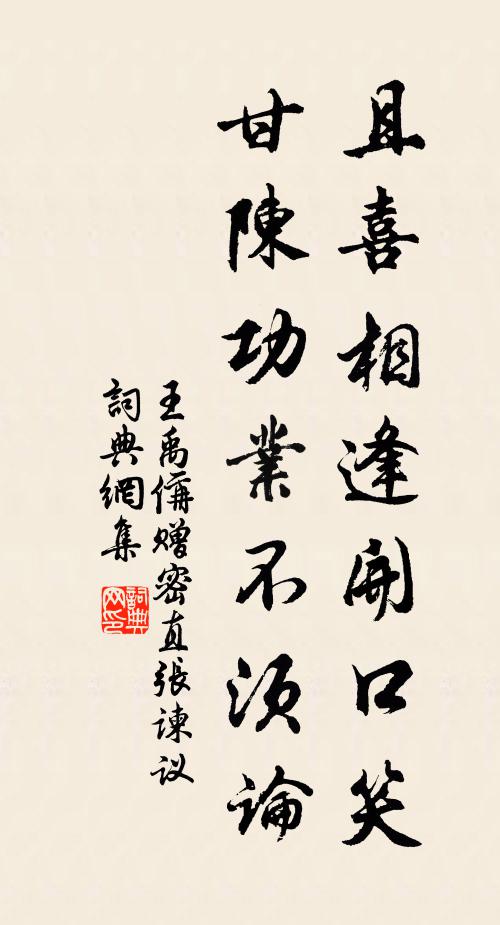 且喜相逢開口笑
甘陳功業不須論
王禹偁贈密直張諫议
詞典網集
詞典
网印